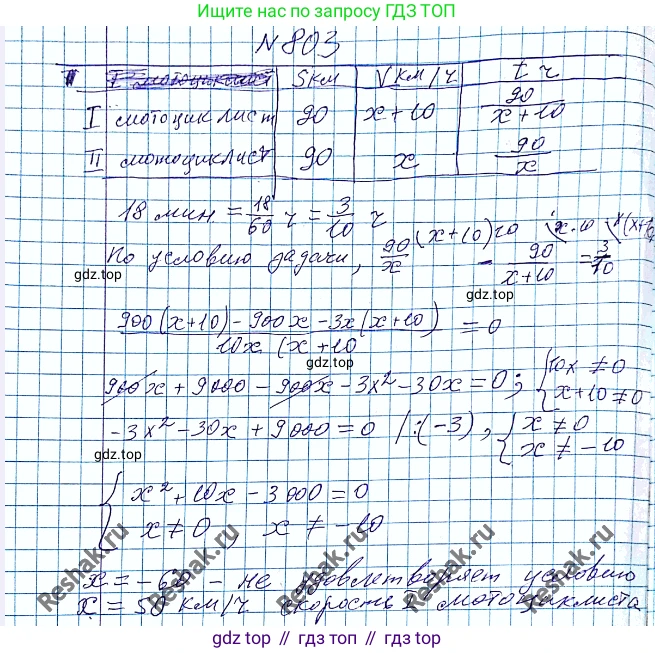 Ищите нас по запросу ГДЗ ТОП
N 803
S км V км/ч t ч
I мотоциклист 90 x+10 90/(x+10)
II мотоциклист 90 x 90/x
18 мин = 18/60 ч = 3/10 ч
По условию задачи, 90/x - 90/(x+10) = 3/10
gdz.top
gdz.top
(900(x+10)-900x-3x(x+10))/(10x(x+10) = 0
gdz.top
900x + 9000 - 900x - 3x² - 30x = 0; { 10x ≠ 0
x+10 ≠ 0
-3x² - 30x + 9000 = 0 /:(-3), { x ≠ 0
x ≠ -10
gdz.top
{ x² + 10x - 3000 = 0
x ≠ 0, x ≠ -10
x = -60 - не удовлетворяет условию
x = 50 км/ч скорость II мотоциклиста
Reshak.ru
Reshak.ru
Reshak.ru
Reshak.ru
gdz top // гдз топ // gdz.top